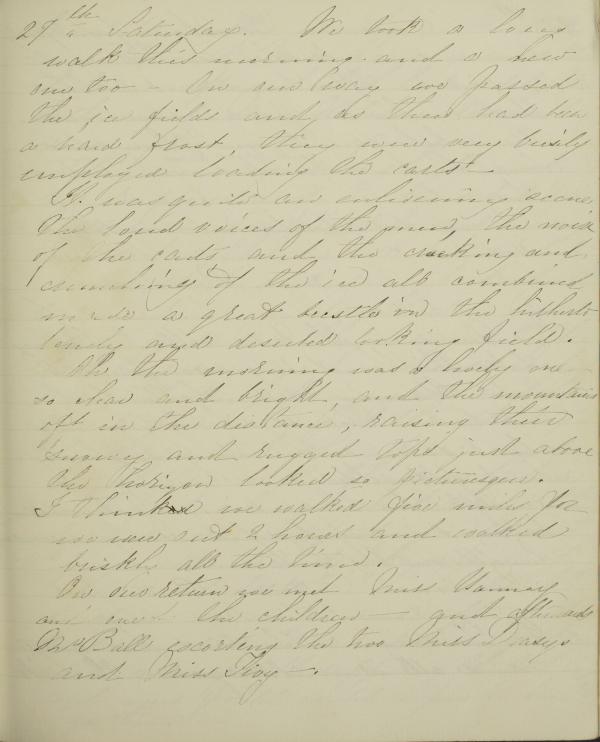 27th Saturday. We took a long
walk this morning and a new
one too – On our way we passed
the ice fields and as there had been
a hard frost, they were very busily
employed loading the carts –
It was quite an enlivening scene,
the loud voices of the men, the noise
of the carts and the cracking and
crunching of the ice all combined
made a great bustle in the hitherto
lonely and deserted looking field.
Oh the morning was a lovely one
so clear and bright, and the mountains
off in the distance, raising their
snowy and rugged tops just above
the horizon looked so picturesque.
I think we walked five miles for
we were out 2 hours and walked
briskly all the time.
On our return we met Miss Hannay
and one of the children – and afterwards
Mr Ball escorting the two Miss
and Miss –.